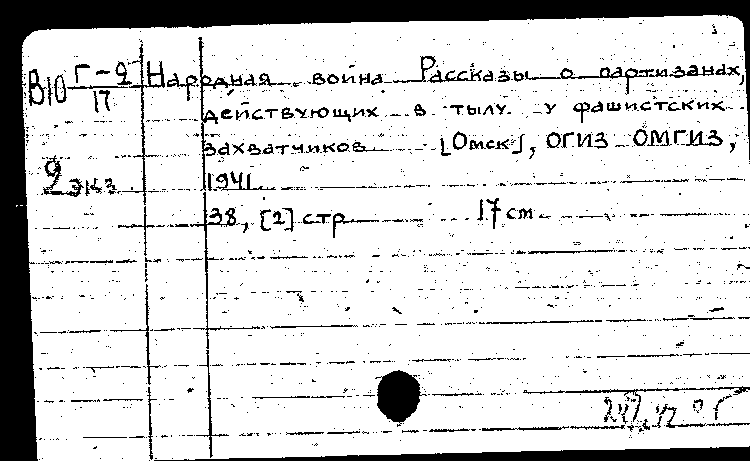 В10 Г-2/17 Народная война Рассказы о партизанах,
действующих в тылу у фашистских
захватчиков [Омск], ОГИЗ ОМГИЗ,
2 экз 1941
38, [2] стр 17 см